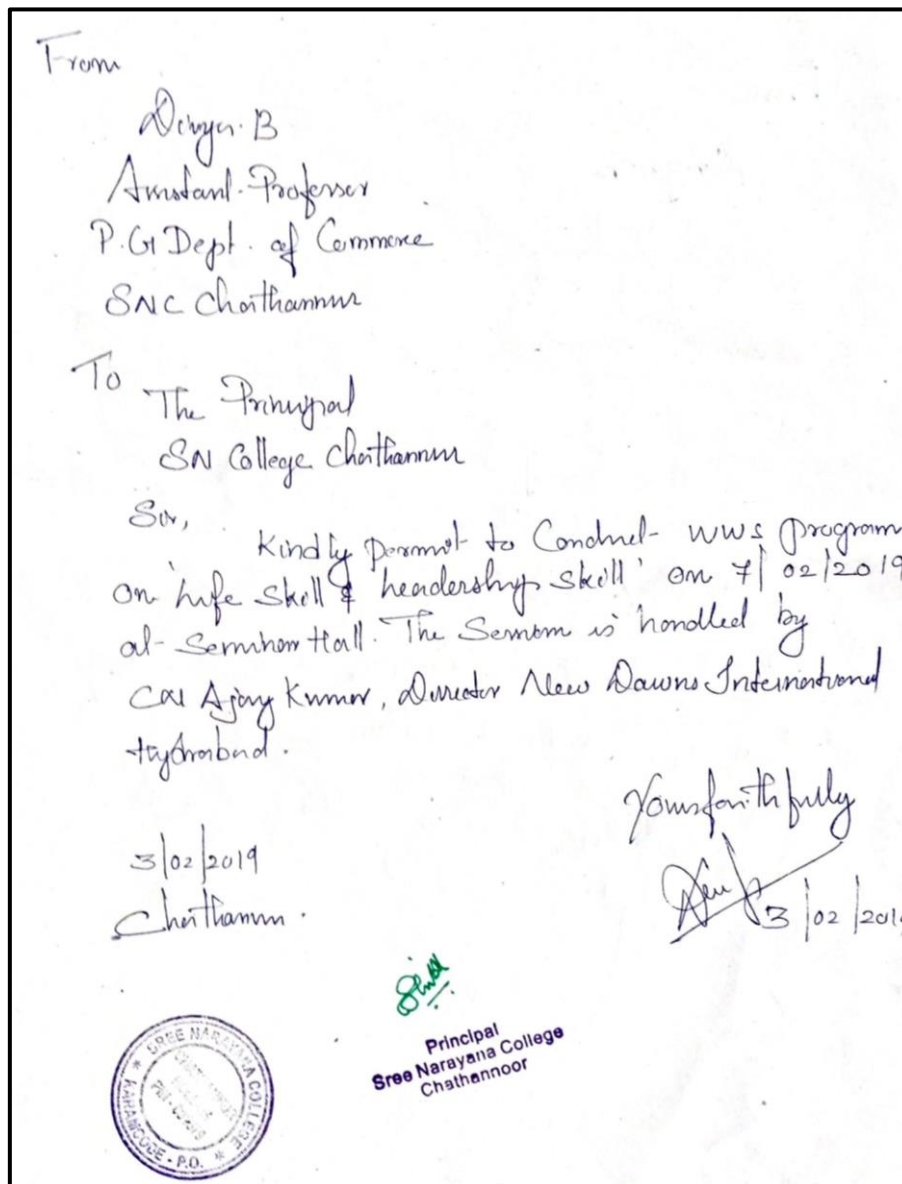 From
Divya. B
Assistant. Professor
P.G Dept. of Commerce
SNC Chathannur
To
The Principal
SN College Chathannur
Sir,
Kindly permit to Conduct WWS program
on 'Life Skill & Leadership Skill' on 7/02/2019
at Seminar Hall. The Seminar is handled by
Ajay Kumar, Director New Dawns International
Hydrabad.
Yours faithfully
3/02/2019
Chathannur.
3/02/2019
Principal
Sree Narayana College
Chathannoor
SREE NARAYANA COLLEGE
KARAMCODE - P.O.